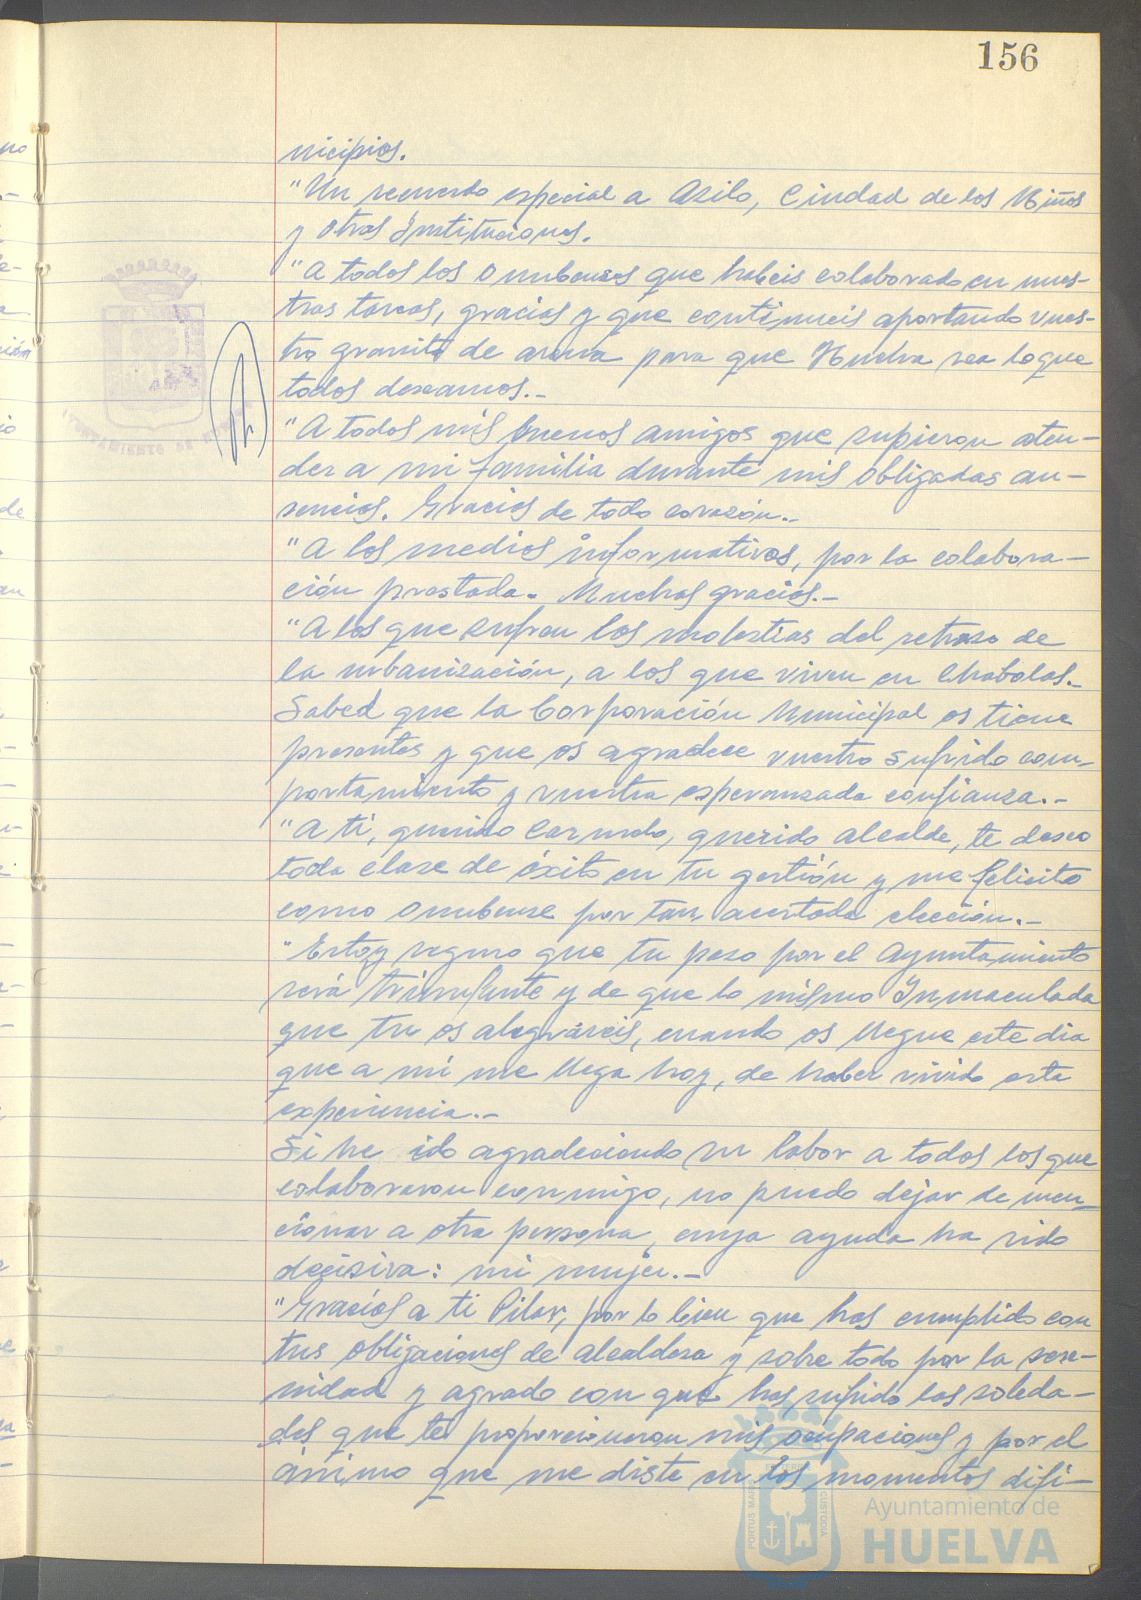 156
nicipios.
"Un recuerdo especial a Asilo, Ciudad de los Niños
y otras Instituciones.
"A todos los Onubenses que habeis colaborado en nues-
tras tareas, gracias y que continueis aportando vues-
tro granito de arena para que Huelva sea lo que
todos deseamos.-
"A todos mis buenos amigos que supieron aten-
der a mi familia durante mis obligadas au-
sencias. Gracias de todo corazón.-
"A los medios informativos, por la colabora-
ción prestada. Muchas gracias.-
"A los que sufren las molestias del retraso de
la urbanización, a los que viven en Chabolas.-
Sabed que la Corporación Municipal os tiene
presentes y que os agradece vuestro sufrido com-
portamiento y vuestra esperanzada confianza.-
"A ti, querido , querido alcalde, te deseo
toda clase de éxito en tu gestión y me felicito
como onubense por tan acertada elección.-
"Estoy seguro que tu paso por el Ayuntamiento
será triunfante y de que lo mismo Inmaculada
que tu os alegrareis, cuando os llegue este dia
que a mi me llega hoy, de haber vivido esta
experiencia.-
Si he ido agradeciendo su labor a todos los que
colaboraron conmigo, no puedo dejar de men-
cionar a otra persona, cuya ayuda ha sido
decisiva: mi mujer.-
"Gracias a ti Pilar, por lo bien que has cumplido con
tus obligaciones de alcaldesa y sobre todo por la sere-
nidad y agrado con que has sufrido las soleda-
des que te proporcionaron mis ocupaciones y por el
ánimo que me diste en los momentos difi-
AYUNTAMIENTO DE
PORTUS MARIS
CUSTODIA
Ayuntamiento de
HUELVA